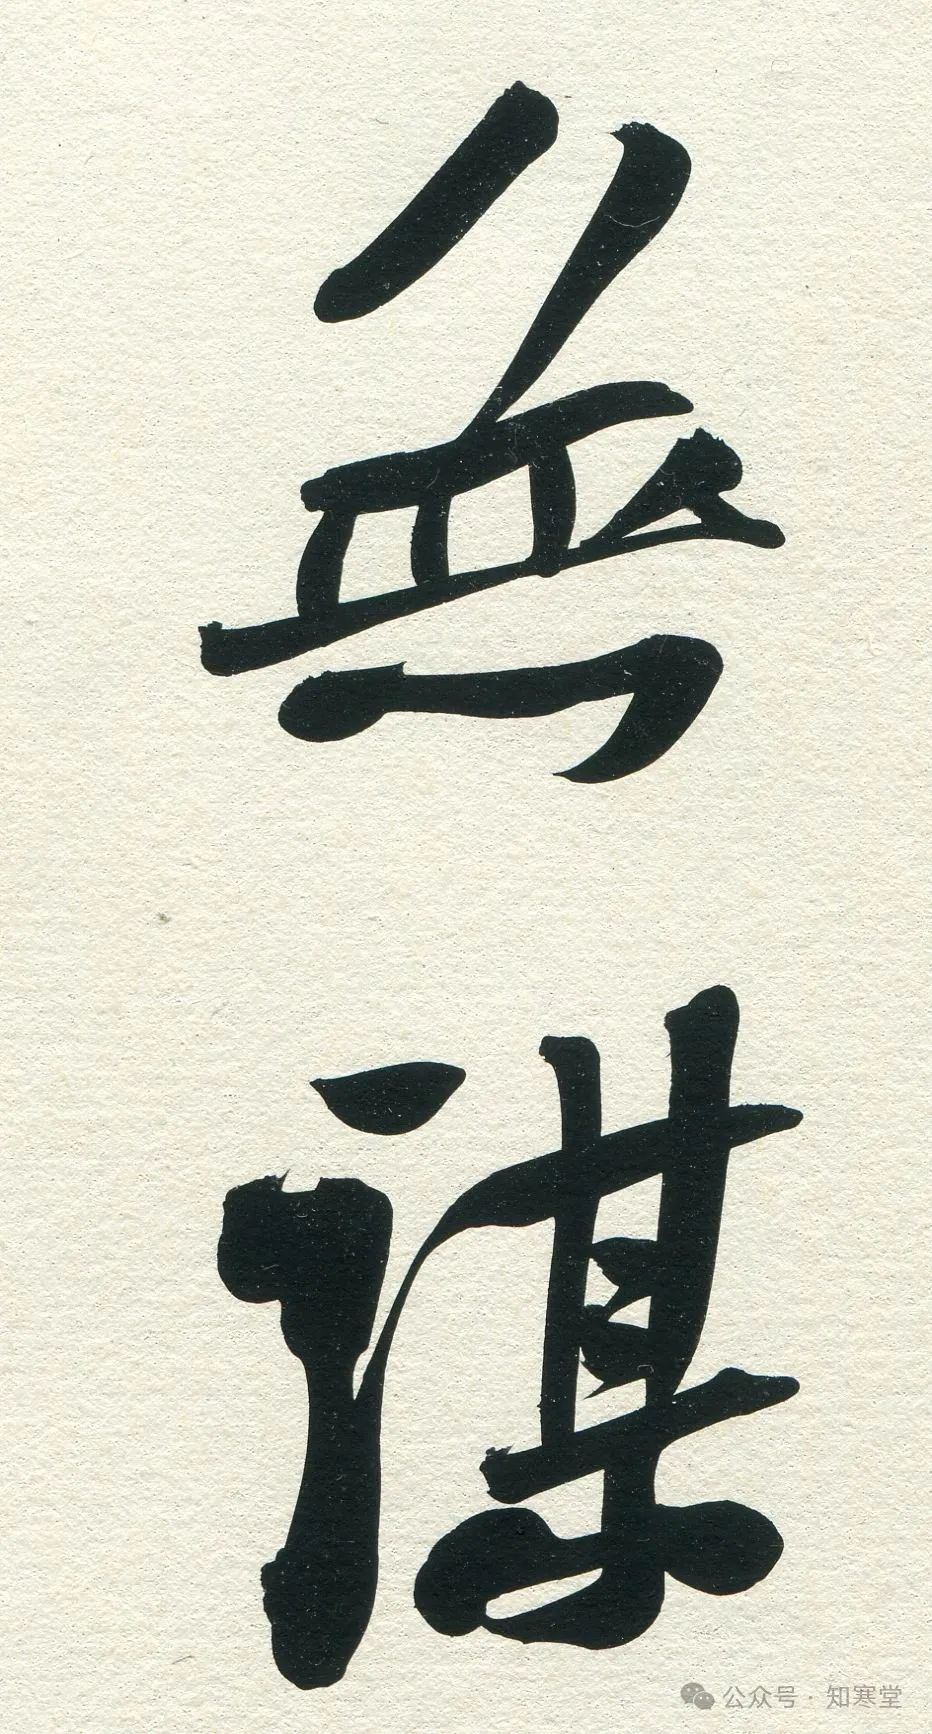 無謀
公众号 · 知寒堂